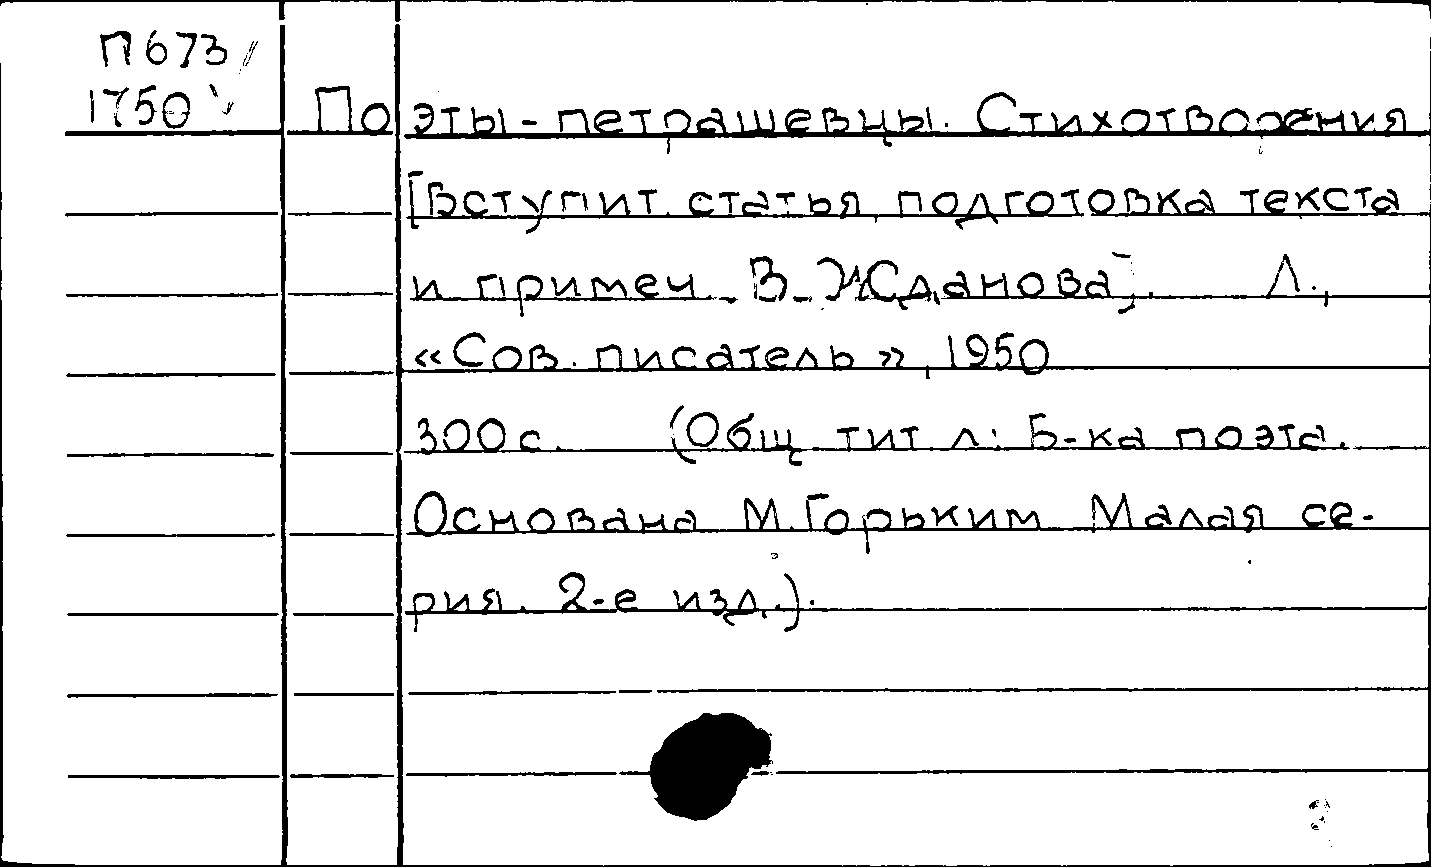 П673
1750
Поэты-петрашевцы. Стихотворения
[Вступит. статья, подготовка текста
и примеч. В. Жданова]. Л.,
«Сов. писатель», 1950
300 с. (Общ. тит. л: Б-ка поэта.
Основана М. Горьким. Малая се-
рия. 2-е изд.).